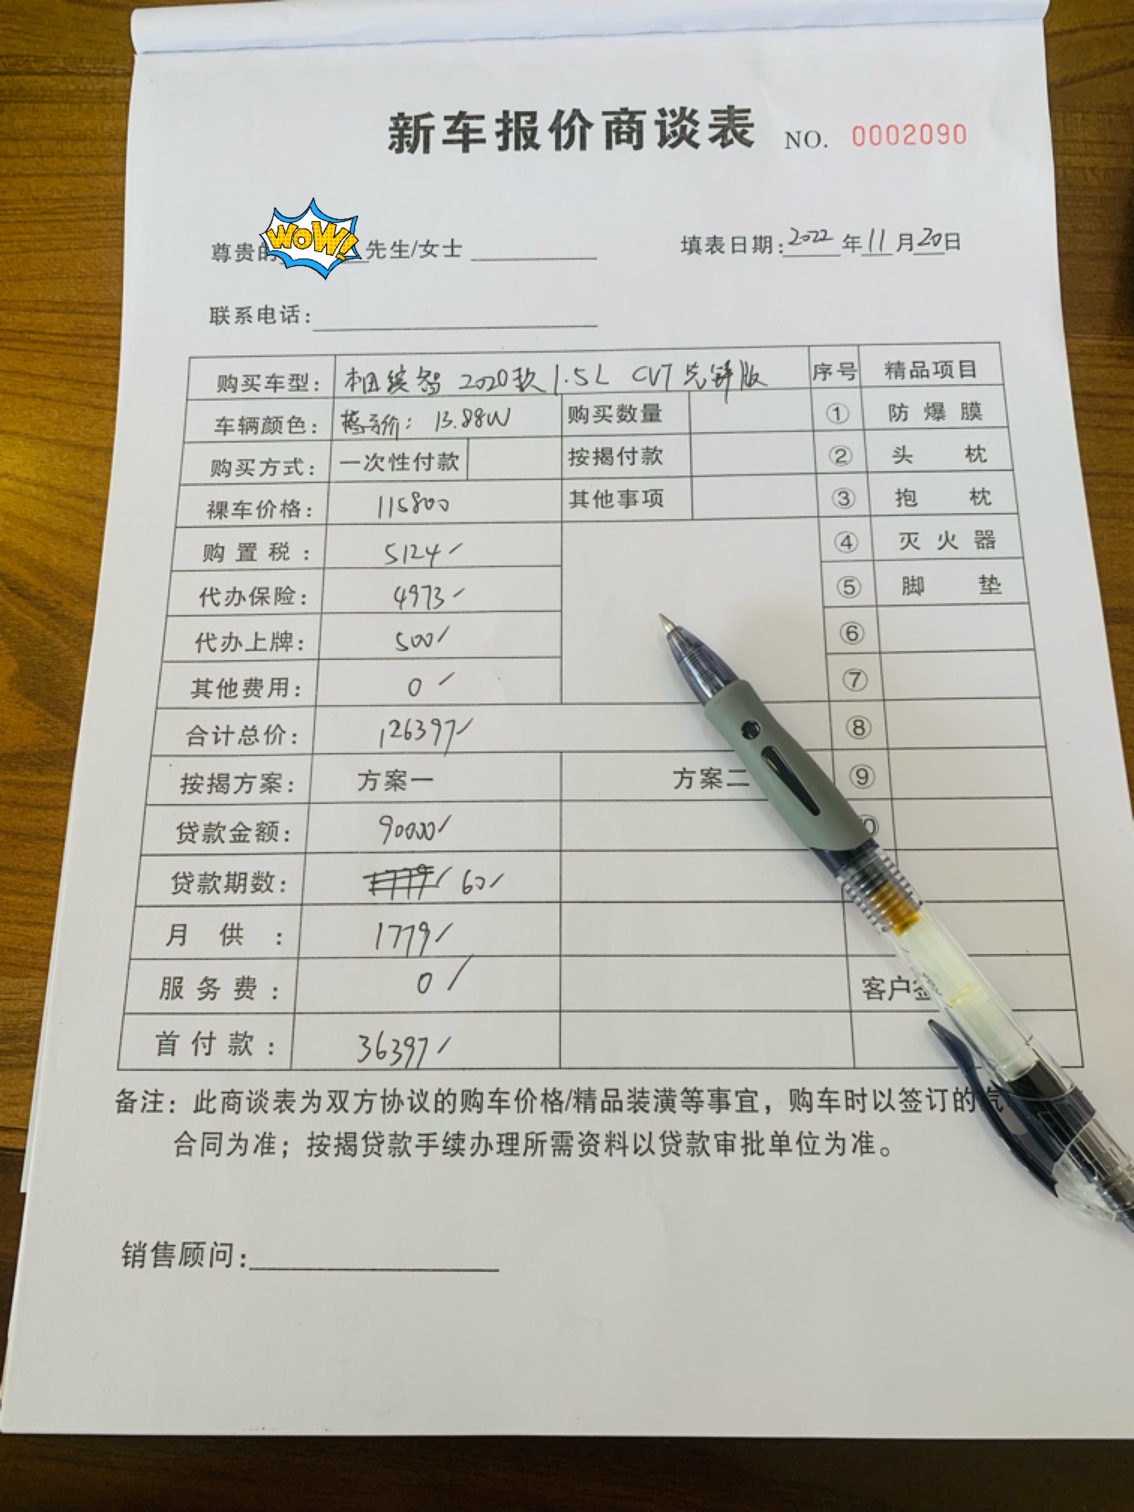 新车报价商谈表 NO. 0002090
WOW!
尊贵的 先生/女士 填表日期:2022年11月20日
联系电话:
购买车型: 本田缤智 2020款 1.5L CVT先锋版 序号 精品项目
车辆颜色: 指导价: 13.88W 购买数量 ① 防爆膜
购买方式: 一次性付款 按揭付款 ② 头枕
裸车价格: 115800 其他事项 ③ 抱枕
购置税: 5124 ④ 灭火器
代办保险: 4973 ⑤ 脚垫
代办上牌: 500 ⑥
其他费用: 0 ⑦
合计总价: 126397 ⑧
按揭方案: 方案一 方案二 ⑨
贷款金额: 90000
贷款期数: 60
月供: 1779
服务费: 0 客户
首付款: 36397
备注: 此商谈表为双方协议的购车价格/精品装潢等事宜，购车时以签订的汽
合同为准；按揭贷款手续办理所需资料以贷款审批单位为准。
销售顾问: